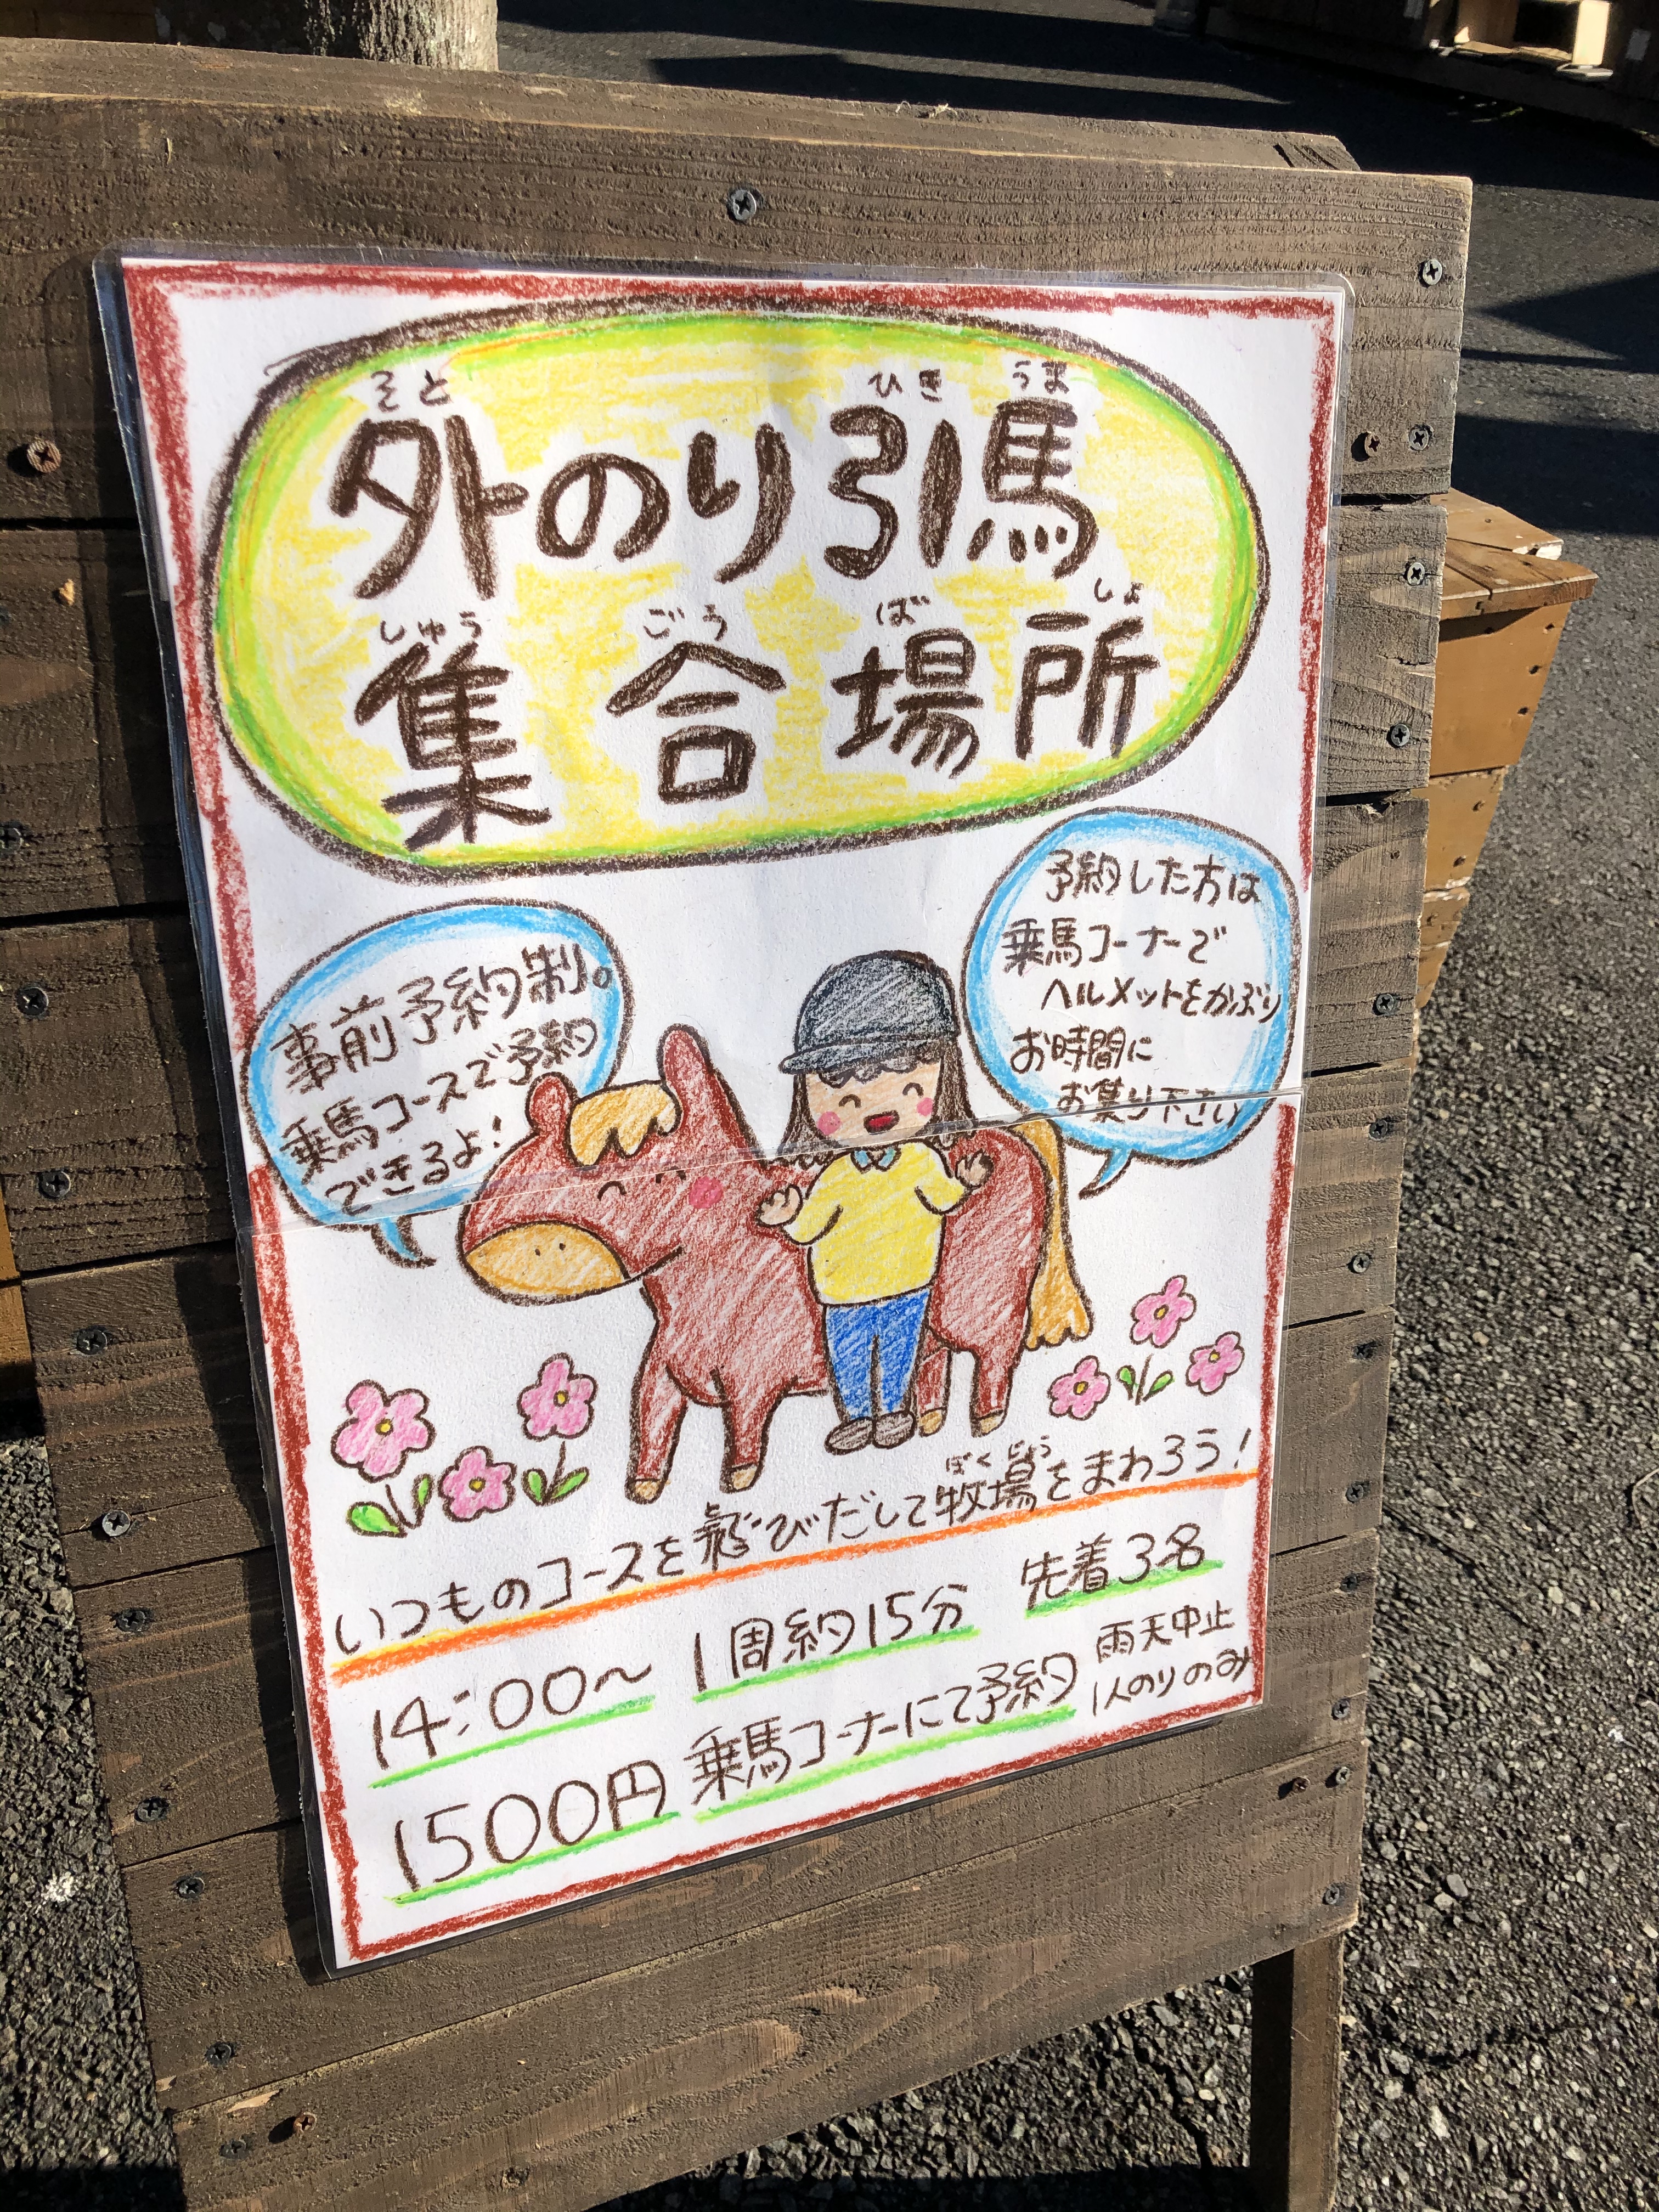 そと ひき うま
外のり引馬
しゅう ごう ば しょ
集合場所
事前予約制。
乗馬コースで予約
できるよ!
予約した方は
乗馬コーナーで
ヘルメットをかぶり
お時間に
お集り下さい
ぼくじょう
いつものコースを飛びだして牧場をまわろう!
14:00〜 1周約15分 先着3名
1500円 乗馬コーナーにて予約
雨天中止
1人のりのみ